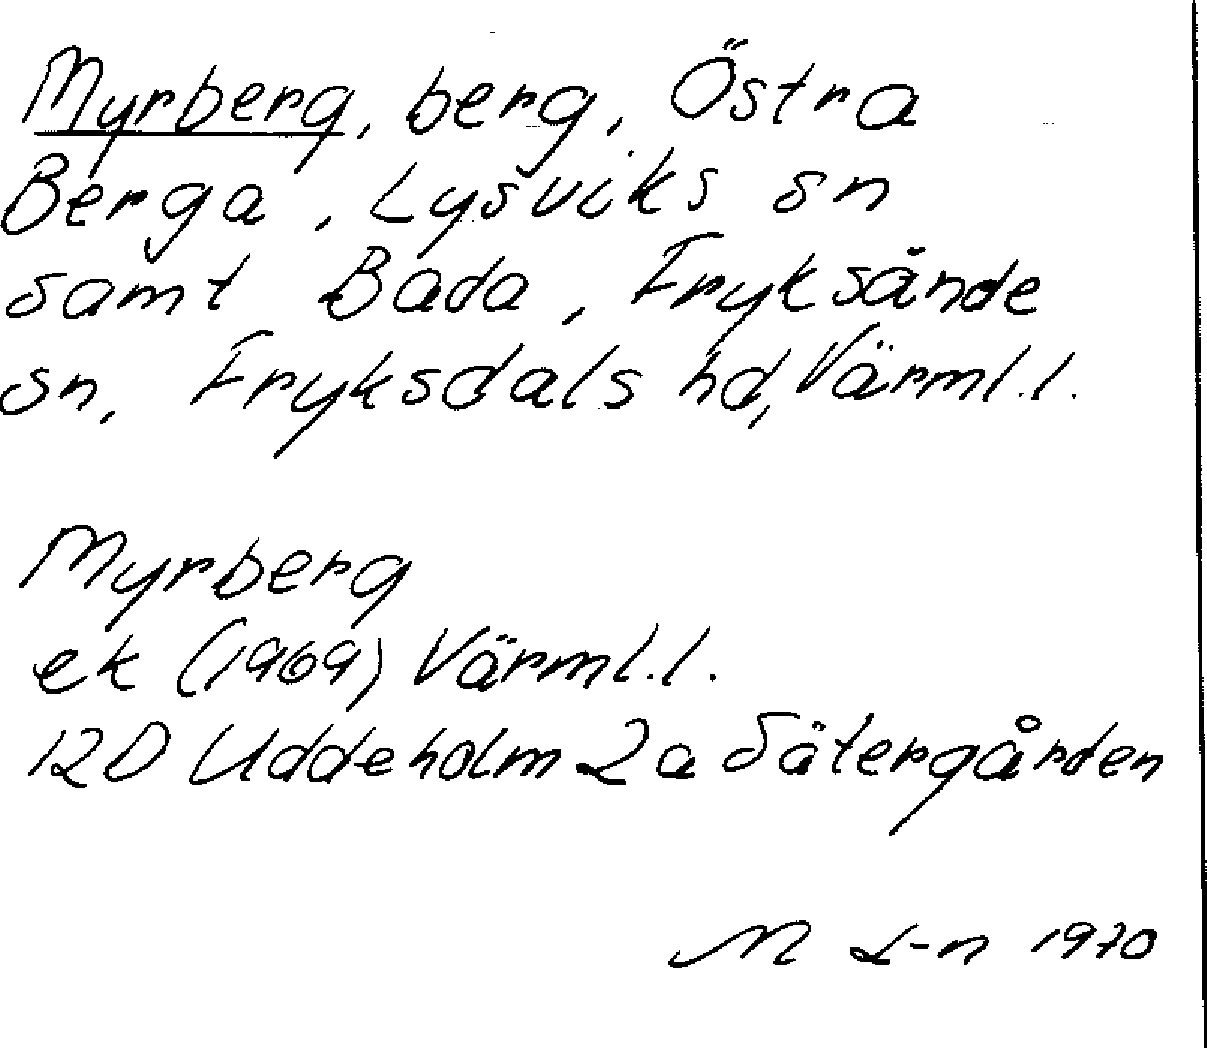 Myrberg, berg, Östra
Berga, Lysviks sn
samt Bada, Fryksände
sn, Fryksdals hd, Värml. l.
Myrberg
ek (1969) Värml. l.
12D Uddeholm 2a Sätergården
M L-n 1970